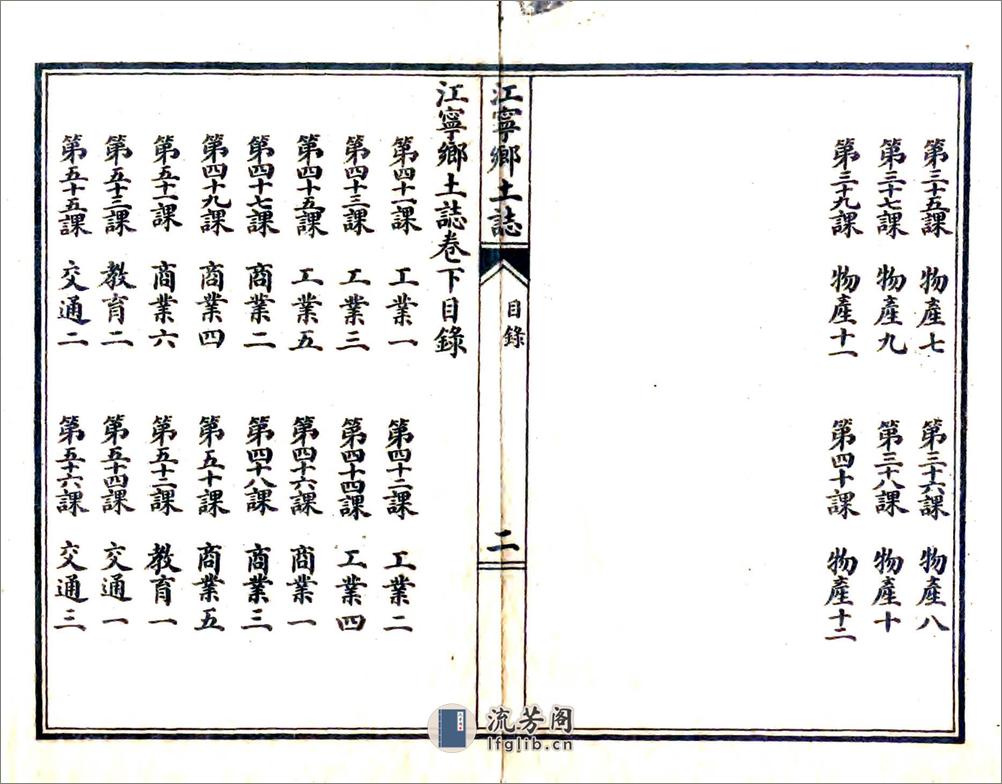 第三十五課　物產七　第三十六課　物產八
第三十七課　物產九　第三十八課　物產十
第三十九課　物產十一　第四十課　物產十二
江寧鄉土誌　目錄　二
江寧鄉土誌卷下目錄
第四十一課　工業一　第四十二課　工業二
第四十三課　工業三　第四十四課　工業四
第四十五課　工業五　第四十六課　商業一
第四十七課　商業二　第四十八課　商業三
第四十九課　商業四　第五十課　商業五
第五十一課　商業六　第五十二課　教育一
第五十三課　教育二　第五十四課　交通一
第五十五課　交通二　第五十六課　交通三
流芳阁
lfglib.cn